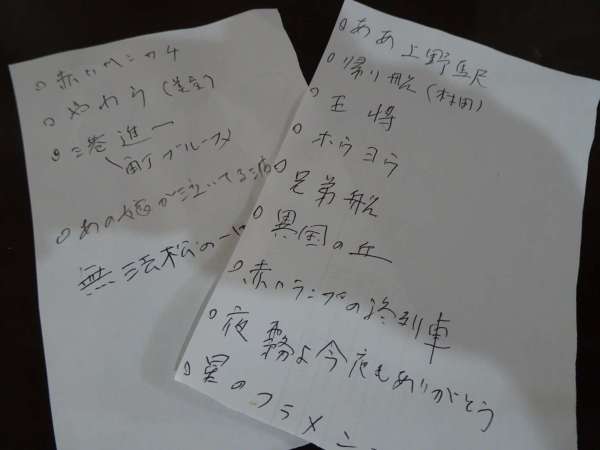 ○赤いハンカチ
○やわら(美空)
○三巻進一
港町ブルース
○あの娘が泣いてる波
無法松の一
○ああ上野駅
○帰り船(村田)
○王将
○ホウヨウ
○兄弟船
○異国の丘
○赤いランプの終列車
○夜霧よ今夜もありがとう
○星のフラメン